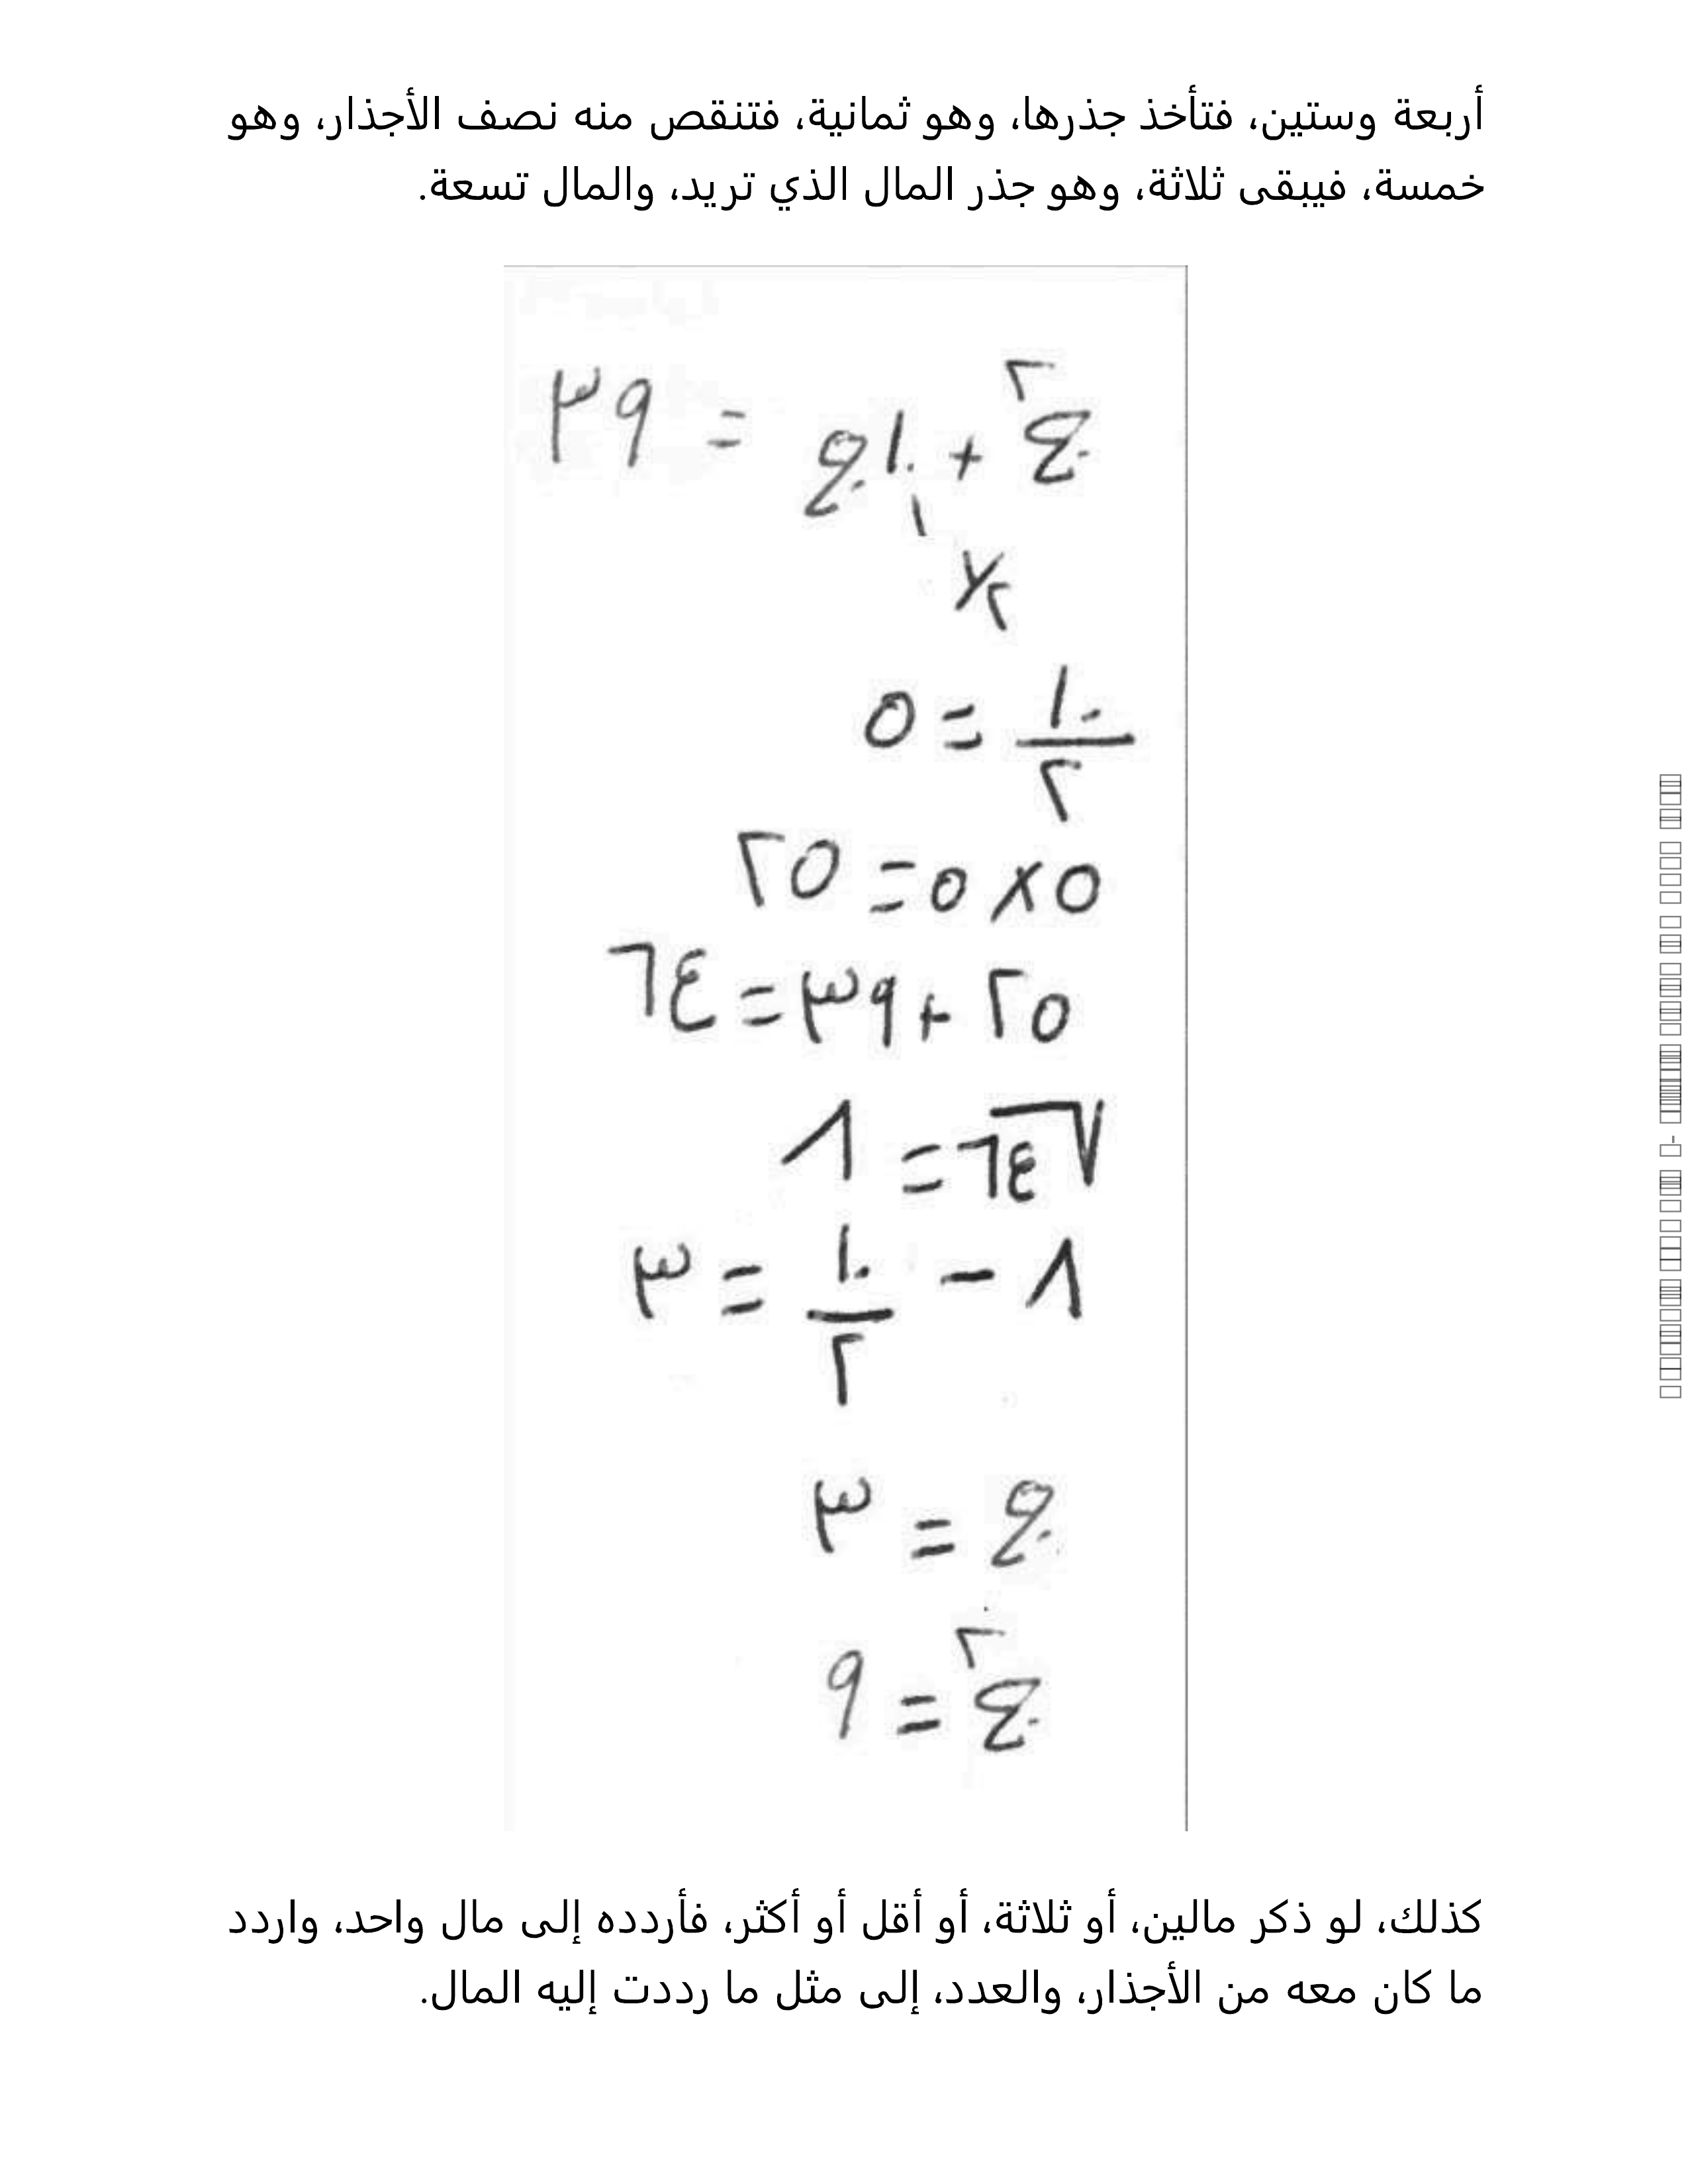 أربعة وستين، فتأخذ جذرها، وهو ثمانية، فتنقص منه نصف الأجذار، وهو
خمسة، فيبقى ثلاثة، وهو جذر المال الذي تريد، والمال تسعة.
غ٢ + ١٠غ = ٣٩
١٠/٢ = ٥
٥ × ٥ = ٢٥
٢٥ + ٣٩ = ٦٤
√٦٤ = ٨
٨ − ١٠/٢ = ٣
غ = ٣
غ٢ = ٩
كذلك، لو ذكر مالين، أو ثلاثة، أو أقل أو أكثر، فأردده إلى مال واحد، واردد
ما كان معه من الأجذار، والعدد، إلى مثل ما رددت إليه المال.